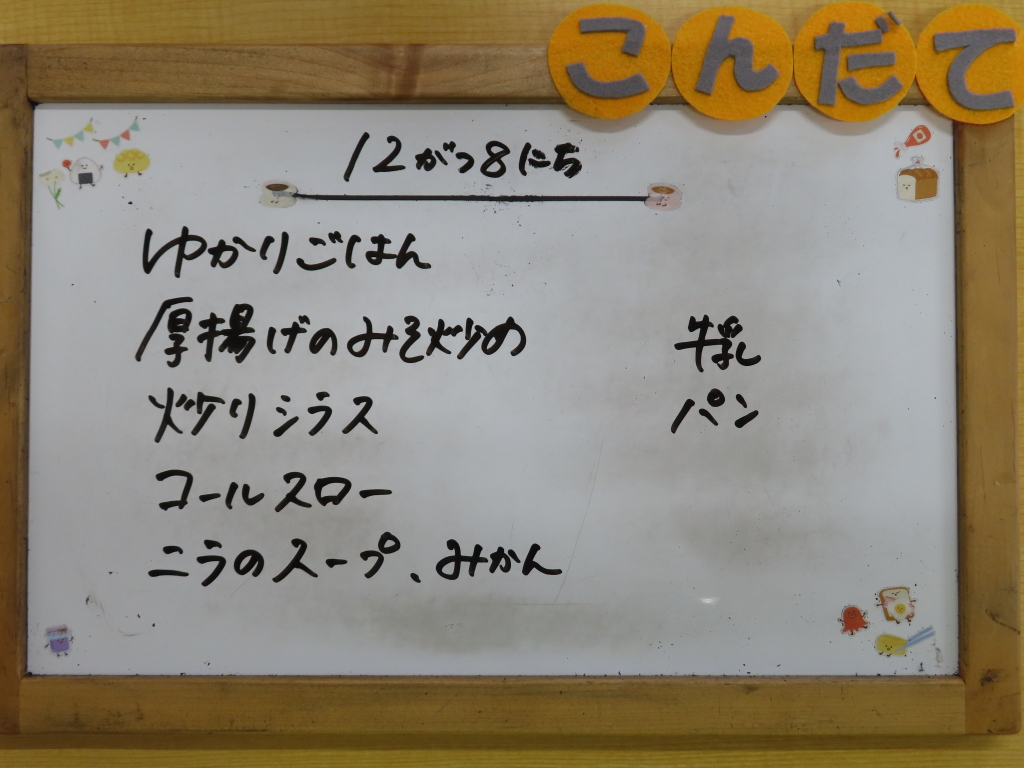 こんだて
12がつ8にち
ゆかりごはん
厚揚げのみそ炒め
炒りシラス
コールスロー
ニラのスープ、みかん
牛乳
パン